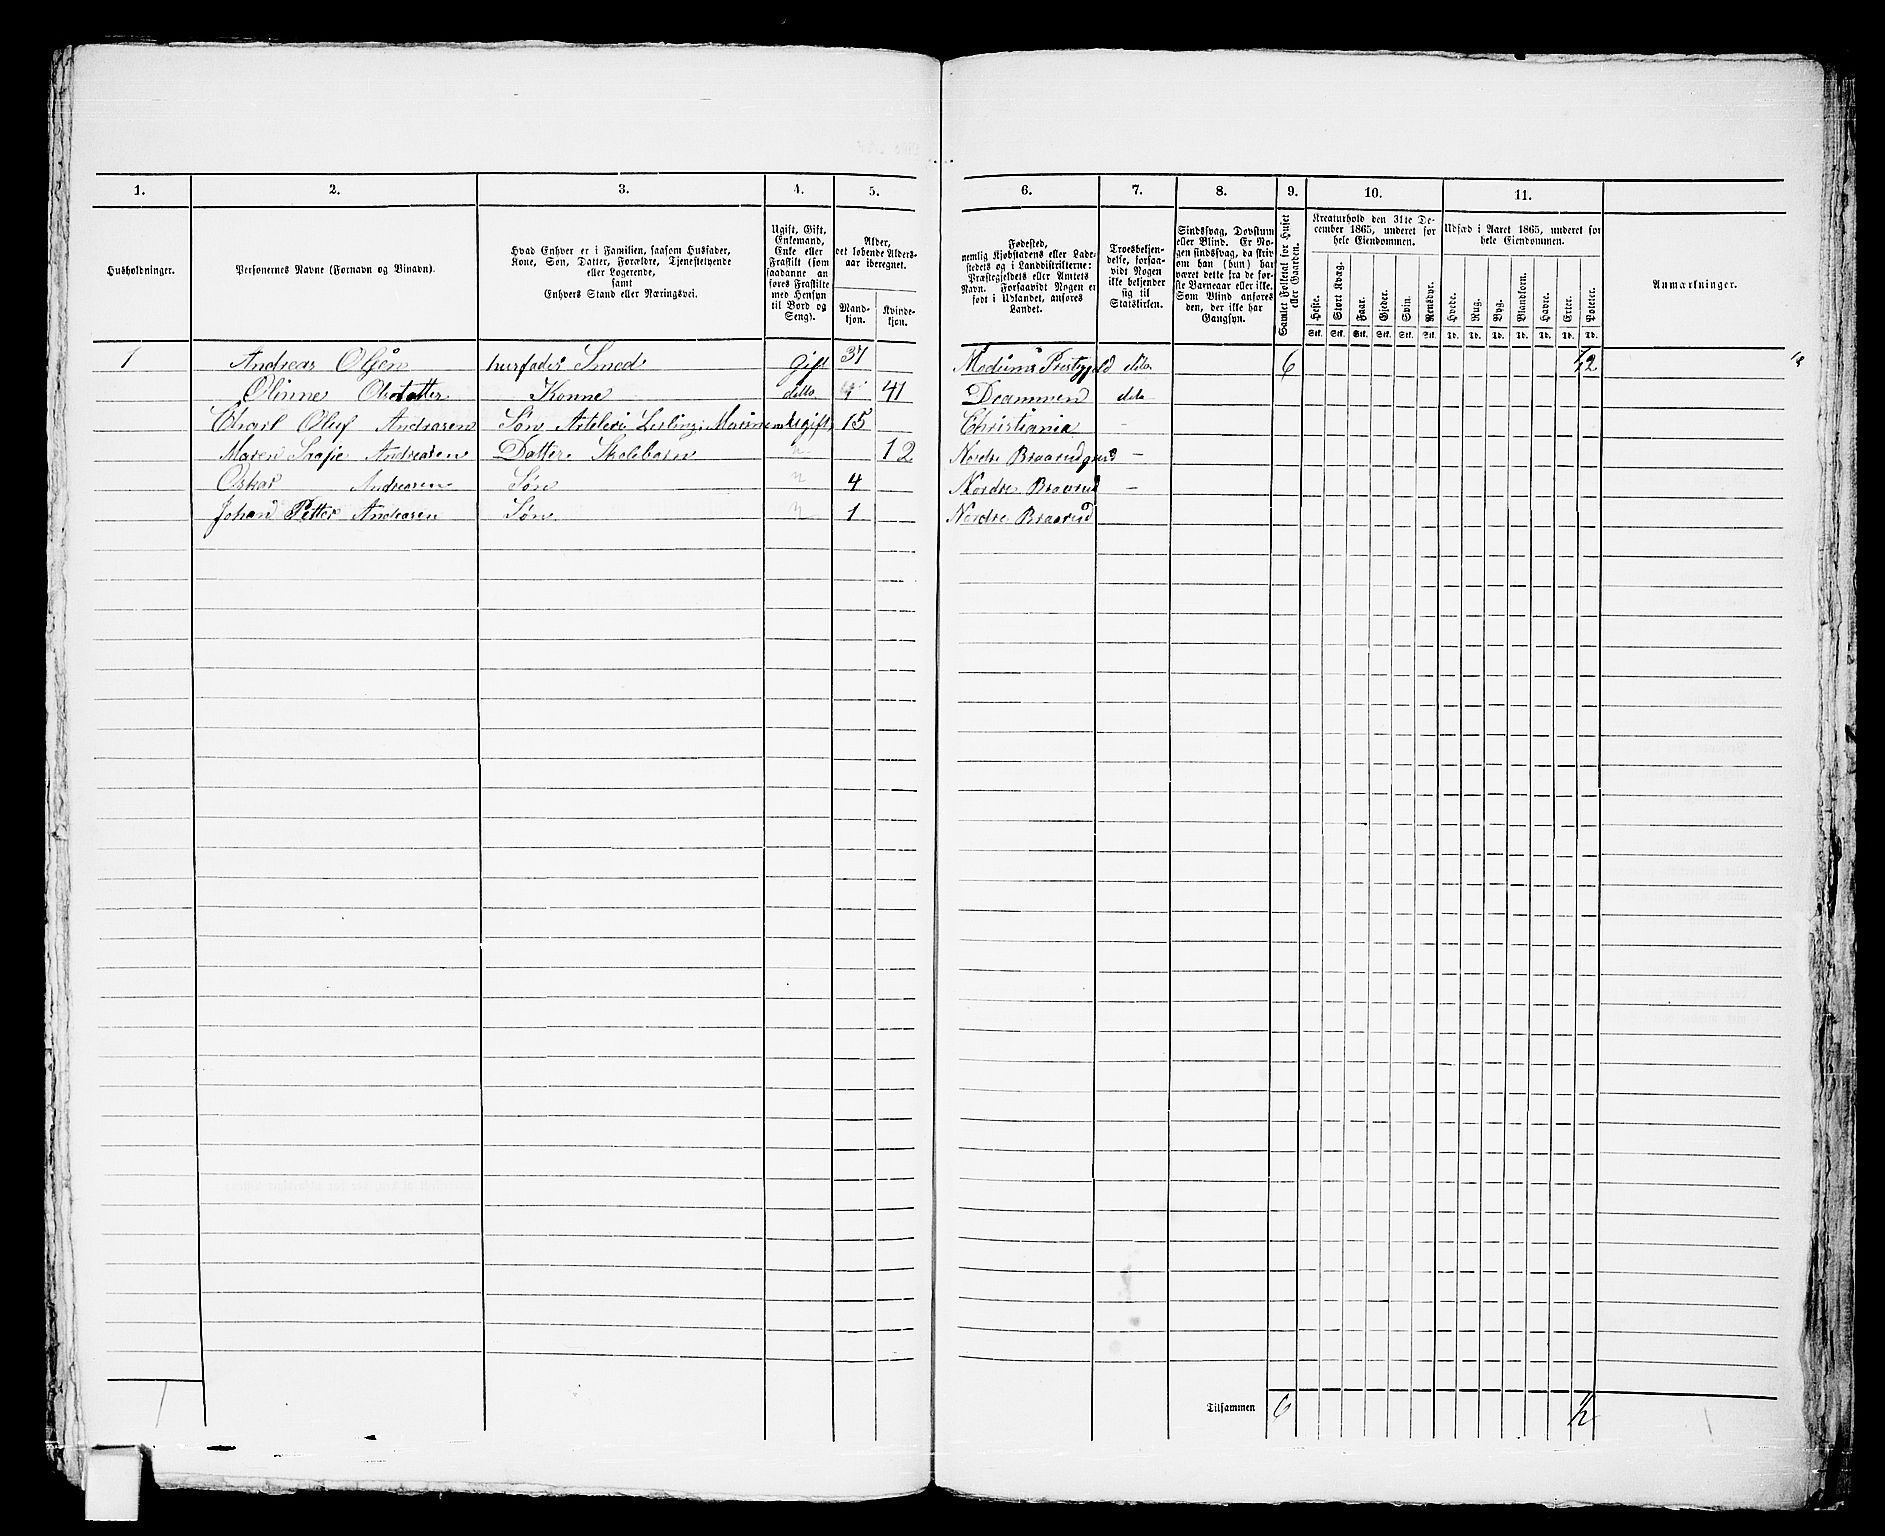 1. 2. 3. 4. 5. 6. 7. 8. 9. 10. 11.
Husholdninger.
Personernes Navne (Fornavn og Binavn).
Hvad Enhver er i Familien, saasom Husfader,
Kone, Søn, Datter, Forældre, Tjenestetyende
eller Logerende,
samt
Enhvers Stand eller Næringsvei.
Ugift, Gift,
Enkemand,
Enke eller
Fraskilt (som
saadanne an
føres Fraskilte
med Hensyn
til Bord og
Seng).
Alder,
det løbende Alders-
aar iberegnet.
Mand-
kjøn.
Kvinde-
kjøn.
Fødested,
nemlig Kjøbstadens eller Lade-
stedets og i Landdistrikterne:
Præstegjeldets eller Amtets
Navn. Forsaavidt Nogen er
født i Udlandet, anføres
Landet.
Troesbekjen-
delse, forsaa-
vidt Nogen
ikke bekjender
sig til
Statskirken.
Sindssvag, Døvstum
eller Blind. Er No-
gen sindssvag, da skriv
om han (hun) har
været dette fra de før-
ste Barneaar eller ikke.
Som Blind anføres
den, der ikke har
Gangsyn.
Samlet Folketal for Huset
eller Gaarden.
Kreaturhold den 31te De-
cember 1865, underet for
hele Eiendommen.
Heste. Stort Kvæg. Faar. Gjeder. Svin. Rensdyr.
Stk. Stk. Stk. Stk. Stk. Stk.
Udsæd i Aaret 1865, underet for
hele Eiendommen.
Hvede. Rug. Byg. Blandkorn. Havre. Erter. Poteter.
Td. Td. Td. Td. Td. Td. Td.
Anmærkninger.
1 Andreas Olsen husfader Smed Gift 37 Modums Prestegjeld dito 6 1/2
Olinne Olsdatter Konne ditto 41 Drammen dito
Charl Oluf Andrasen Søn Ugift 15 Christiania -
Maren Andreasen Datter Skolebarn 12 Nordre -
Oskar Andreasen Søn 4 Nordre Braarud -
Johan Petter Andrasen Søn 1 Nordre Braarud
Tilsammen 6 1/2